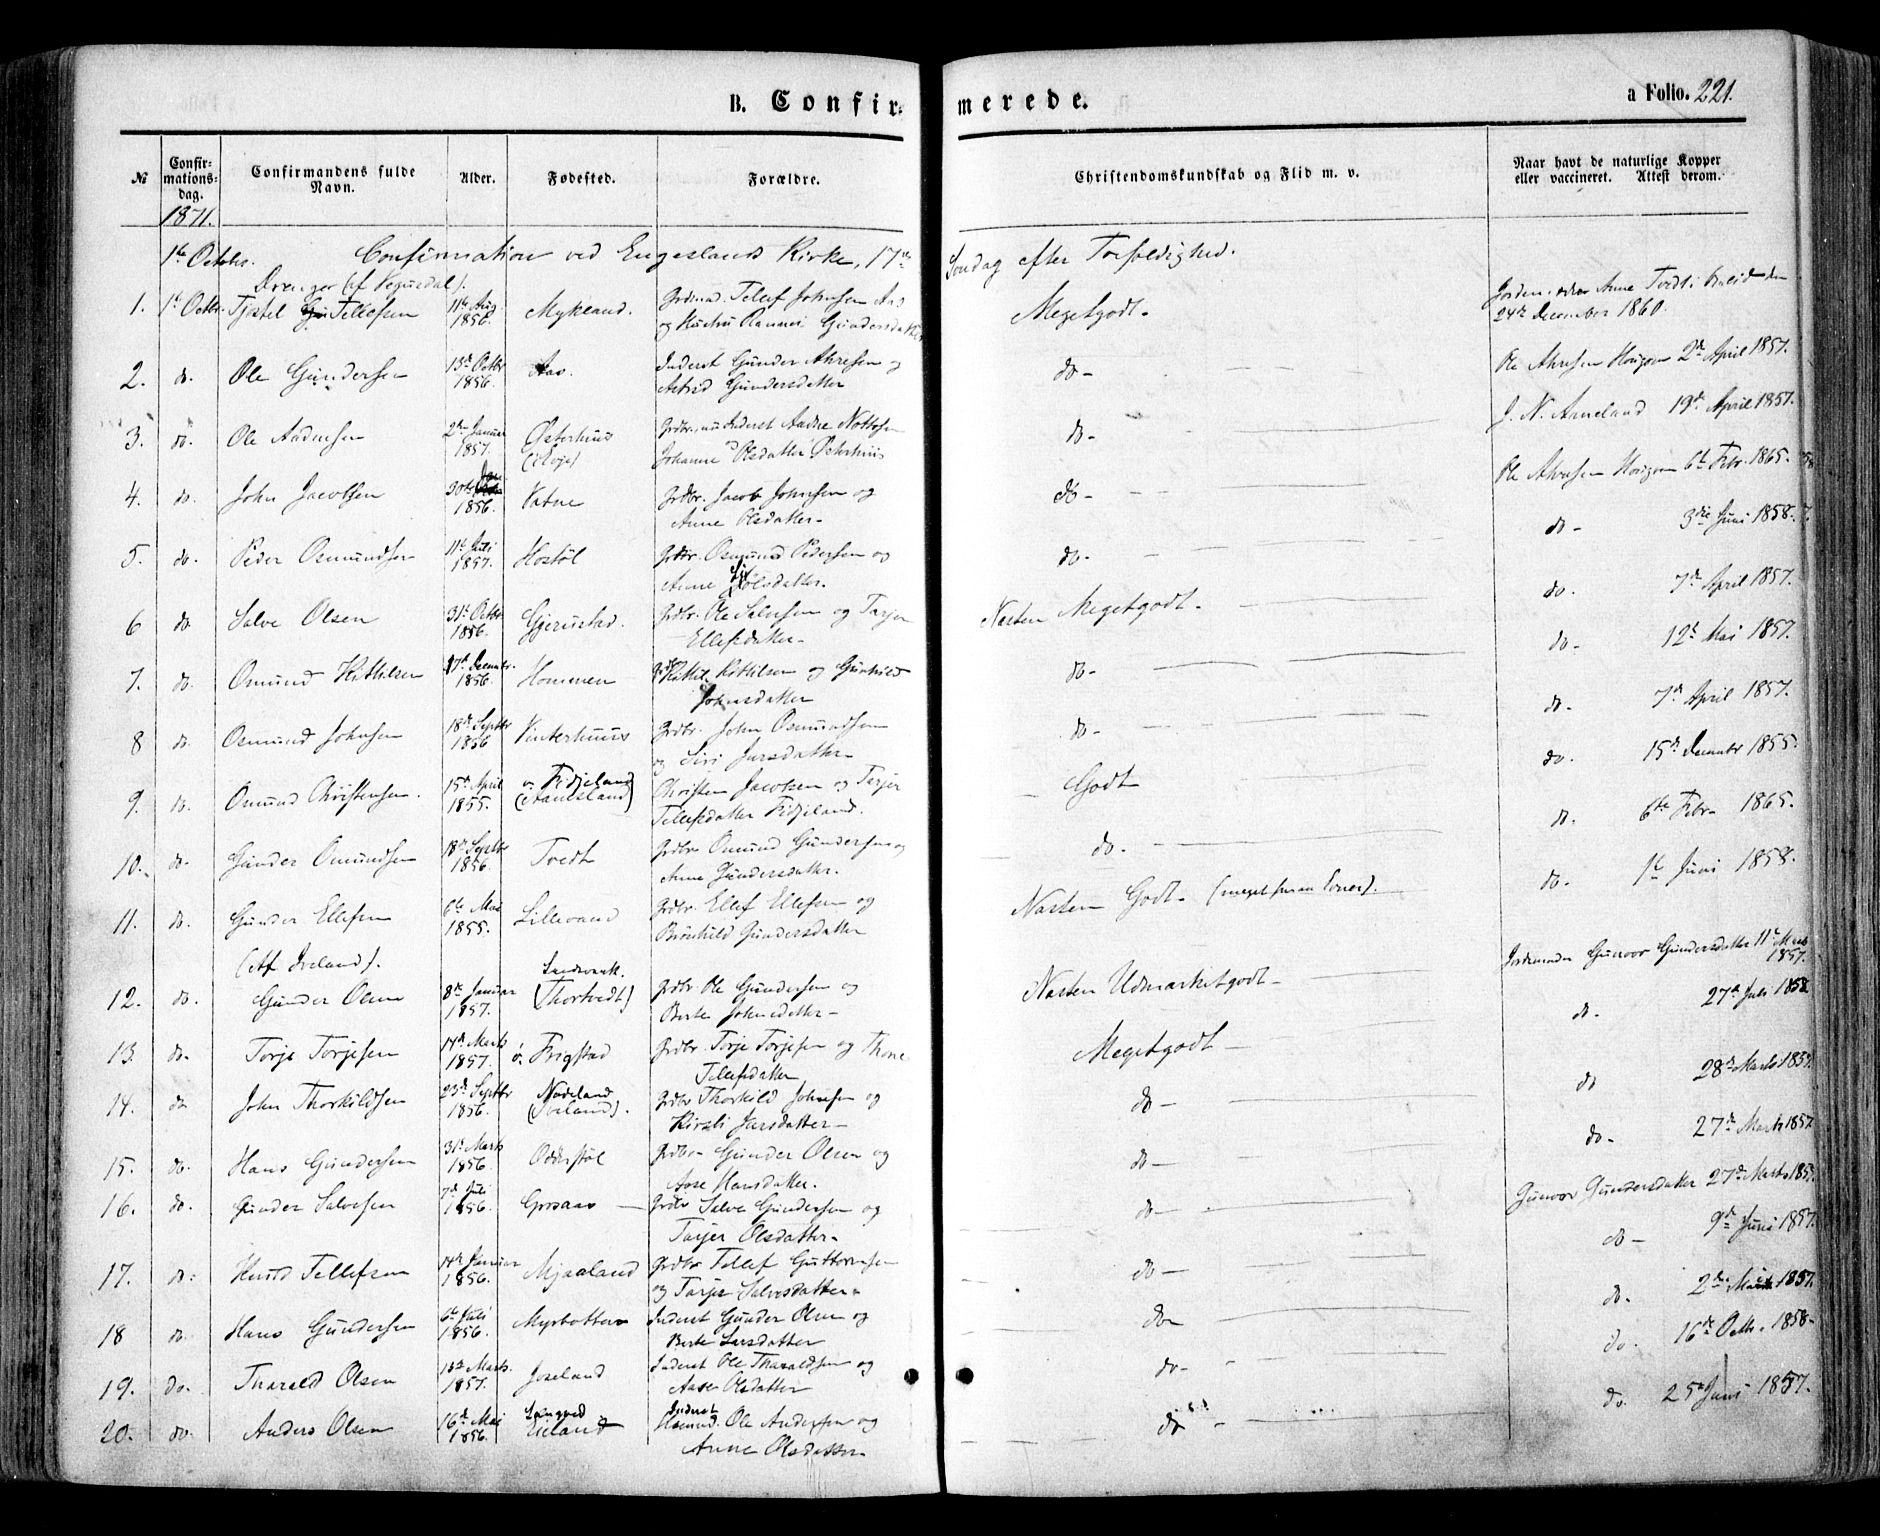 B. Confirmerede.
a Folio. 221.
№ Confirmationsdag. Confirmandens fulde Navn. Alder. Fødested. Forældre. Christendomskundskab og Flid m. v. Naar havt de naturlige Kopper eller vaccineret. Attest derom.
1871.
1ste Octobr. Confirmation ved Engeslands Kirke, 17de Søndag efter Trefoldighed.
Drenge (af Vegusdal).
1. 1ste Octbr. Tjøstel Tellefsen 11te Aug 1856. Mykland. Tellef Johnsen Aas og Hustru Gundersdatter Megetgodt. Anne Tvedt 24de December 1860.
2. do. Ole Gundersen 13de Octbr 1856. Aas. Inderst Gunder Ahresen og Astrid Gundersdatter do Ole Ahresen Horgom 2de April 1857.
3. do. Ole Aadnesen 2den Januar 1857. Østerhuus (Evje) Grdbr., nu Inderst Aadne Nottosen Johanne Olsdatter Østerhuus do J. N. Aaneland 19de April 1857.
4. do. John Jacobsen 30te 1856. Vatne Grdbr. Jacob Johnsen og Anne Olsdatter do Ole Ahresen Horgom 6te Febr. 1865.
5. do. Peder Osmundsen 11te Juli 1857. Hostøl Grdbr. Osmund Pedersen og Anne do do 3die Juni 1858.
6 do. Salve Olsen 31te Octbr 1856. Gjerustad. Grdbr. Ole Salvesen og Tarjer Ellefsdatter Næsten Megetgodt. do. 7de April 1857.
7. do. Omund Kittilsen 17de Decembr. 1856. Hommen Grdbr Kittil Kittilsen og Gunhild Johnsdatter do do 12te Mai 1857.
8 do. Osmund Johnsen 18de Septbr 1856 Vinterhuus Grdbr. John Osmundsen og Siri Larsdatter do do 7de April 1857.
9. do. Omund Christensen. 15de April 1855. Fidjeland Christen Jacobsen og Tarjer Tellefsdatter Fidjeland. Godt do. 15de Decembr 1855.
10. do. Gunder Omundsen 18de Septbr 1856. Tvedt Grdbr Omund Gundersen og Anne Gundersdatter. do. do. 6te Febr 1865.
11. do. Gunder Ellefsen 6te Mai 1855. Lillevand Grdbr. Ellef Ellefsen og Brønhild Gundersdatter Næsten Godt. do. 1ste Juni 1858.
(Af Iveland).
12. do. Gunder Olsen 8de Januar 1857. (Thortvedt) Grdbr. Ole Gundersen og Berte Johnsdatter Næsten Udmærketgodt Jordemoder Gunvor Gundersdatter 11te 1857.
13. do. Torje Torjesen 14de Marts 1857. ø. Frigstad Grdbr. Torje Torjesen og Thone Tellefsdatter Megetgodt do. 27de Juli 1858
14. do John Thorkildsen 23de Septbr 1856. (Iveland). Grdbr Thorkild Johnsen og Kirsti Larsdatter do do 28de Marts 1859.
15. do. Hans Gundersen 31te Marts 1856. Odderstøl Grdbr Gunder Olsen og Aase Hansdatter. do do. 27de Marts 1857
16. do. Gunder Salvesen 7de Juli 1856. Grosaas Grdbr Salve Gundersen og Tarjer Olsdatter do Gunvor Gundersdatter 27de Marts
17. do. Tellefsen 14de Januar 1856. Mjaaland Grdbr Tellef Guttormsen og Tarjer Salvesdatter do do 9de Juni 1857.
18 do. Hans Gundersen 6te Juli 1856. Inderst Gunder Olsen og Berte Larsdatter do do. 2den 1857.
19. do. Tharald Olsen 13de Marts. 1857. Joreland Inderst Ole Tharaldsen og Aase Olsdatter do do. 16de Octbr. 1858.
20. do. Anders Olsen 16de Mai 1856. Inderst Ole Andersen og Anne Olsdatter do do. 25de Juni 1857.